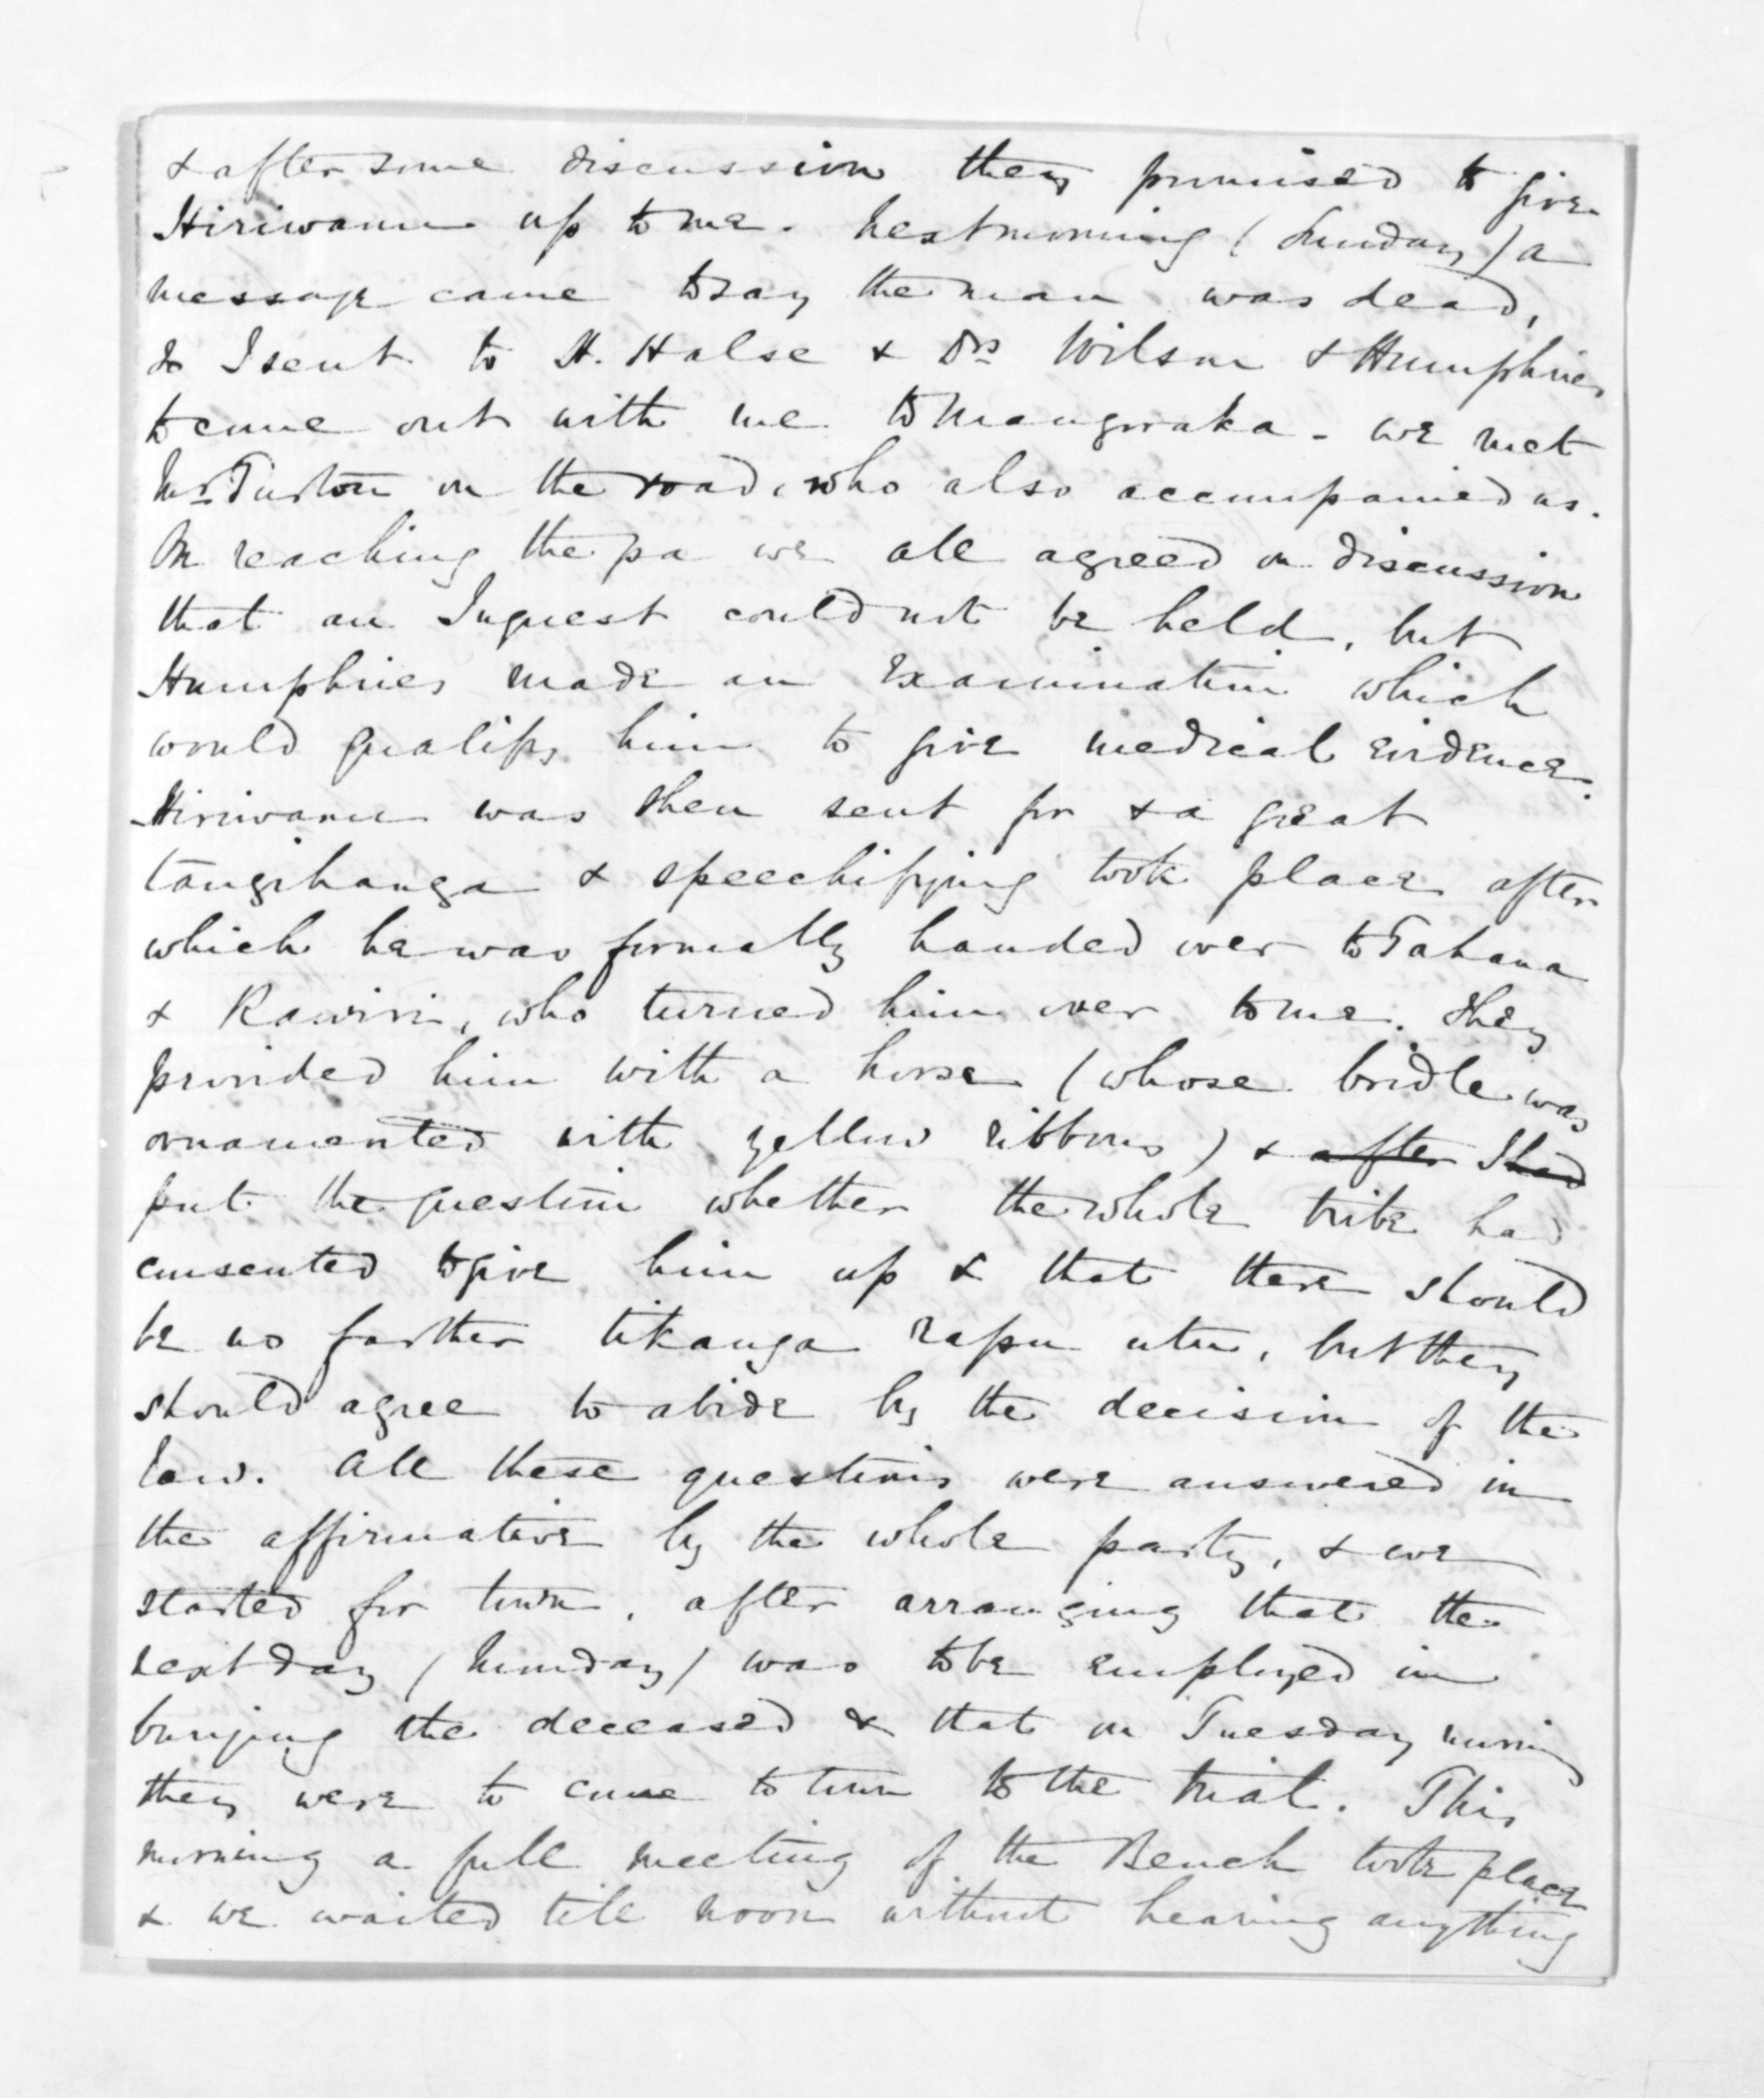 & after some discussion they promised to give
Hiriwanu up to me. Next morning (Sunday) a
message came to say the man was dead,
& I sent to H. Halse & Drs Wilson & Humphries
to come out with me to Mangoraka - we met
Mr Turton on the road, who also accompanied us.
On reaching the pa we all agreed on discussion
that an Inquest could not be held, but
Humphries made an examination which
would qualify him to give medical evidence.
Hiriwanu was then sent for & a great
tangihanga & speechifying took place after
which he was formally handed over to Tahana
& Rawiri, who turned him over to me. They
provided him with a horse (whose bridle was
ornamented with yellow ribbons) & after I had
put the question whether the whole tribe had
consented to give him up & that there should
be no farther tikanga rapu utu, but they
should agree to abide by the decision of the
law. All these questions were answered in
the affirmative by the whole party, & we
started for town, after arranging that the
next day (Monday) was to be employed in
burying the deceased & that on Tuesday morning
they were to come to town to the trial. This
morning a full meeting of the Bench took place
& we waited till noon without hearing anything